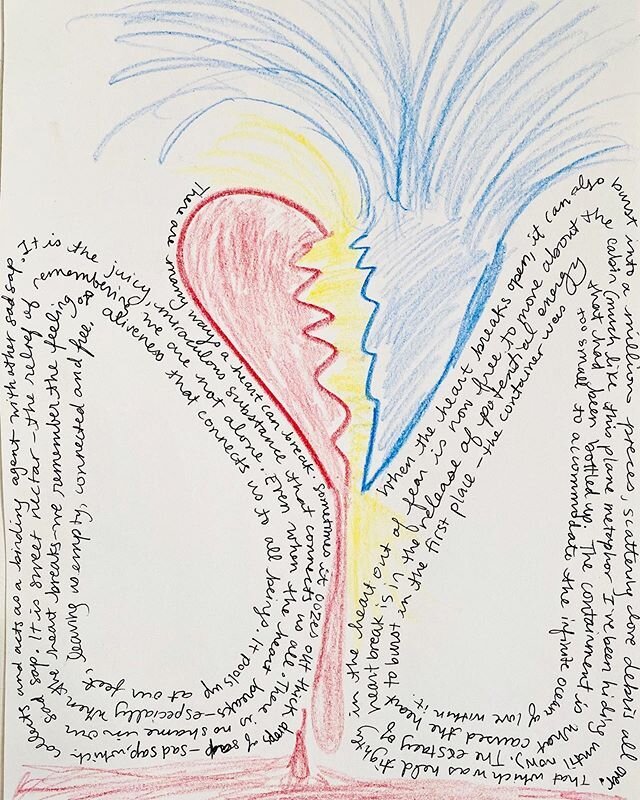 There are many ways a heart can break. Sometimes it oozes out thick drops of sap - sad sap, which collects and acts as a binding agent with other sad sap.
It is the juicy, miraculous substance that connects us all. There is no shame in our sad sap. It is sweet nectar - the relief of
remembering we are not alone. Even when the heart breaks - especially when the heart breaks - we remember the feeling of
aliveness that connects us to all beings. It pools up at our feet, leaving us empty, connected and free.
When the heart breaks open, it can also burst into a million pieces, scattering love debris all over. That which was held tightly
in the heart out of fear is now free to move about the cabin (much like this plane metaphor I've been hiding until now). The ecstasy of
heartbreak is in the release of potential energy that had been bottled up. The containment is what caused the heart
to burst in the first place - the container was too small to accommodate the infinite ocean of love within it.